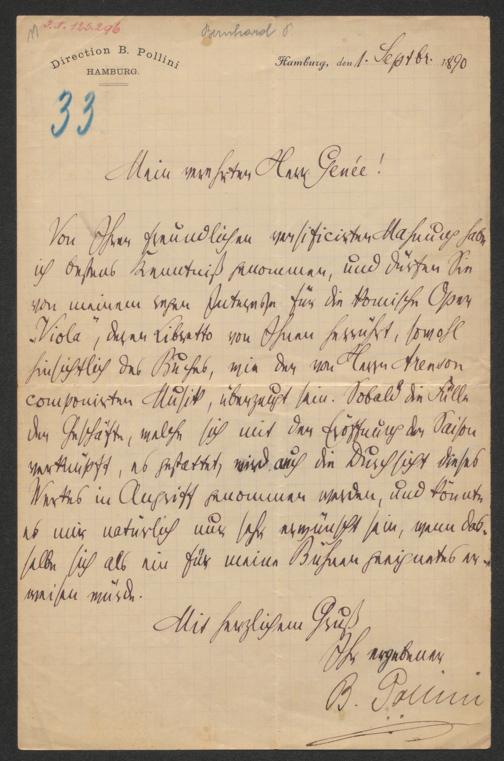 J.N. 125.296
Bernhard P
Direction B. Pollini
HAMBURG.
Hamburg, den 1. Septbr. 1890
33
Mein verehrter Herr Genée!
Von Ihrer freundlichen versificirten Mahnung habe
ich bestens Kenntniß genommen, und dürfen Sie
von meinem regen Interesse für die komische Oper
"Viola", deren Libretto von Ihnen herrührt, sowohl
hinsichtlich des Buches, wie der von Herrn Arenson
componirten Musik, überzeugt sein. Sobald die Fülle
der Geschäfte, welche sich mit der Eröffnung der Saison
verknüpft, es gestattet, wird auch die Durchsicht dieses
Werkes in Angriff genommen werden, und könnte
es mir natürlich nur sehr erwünscht sein, wenn das-
selbe sich als ein für meine Bühnen geeignetes er-
weisen würde.
Mit herzlichem Gruß
Ihr ergebener
B. Pollini